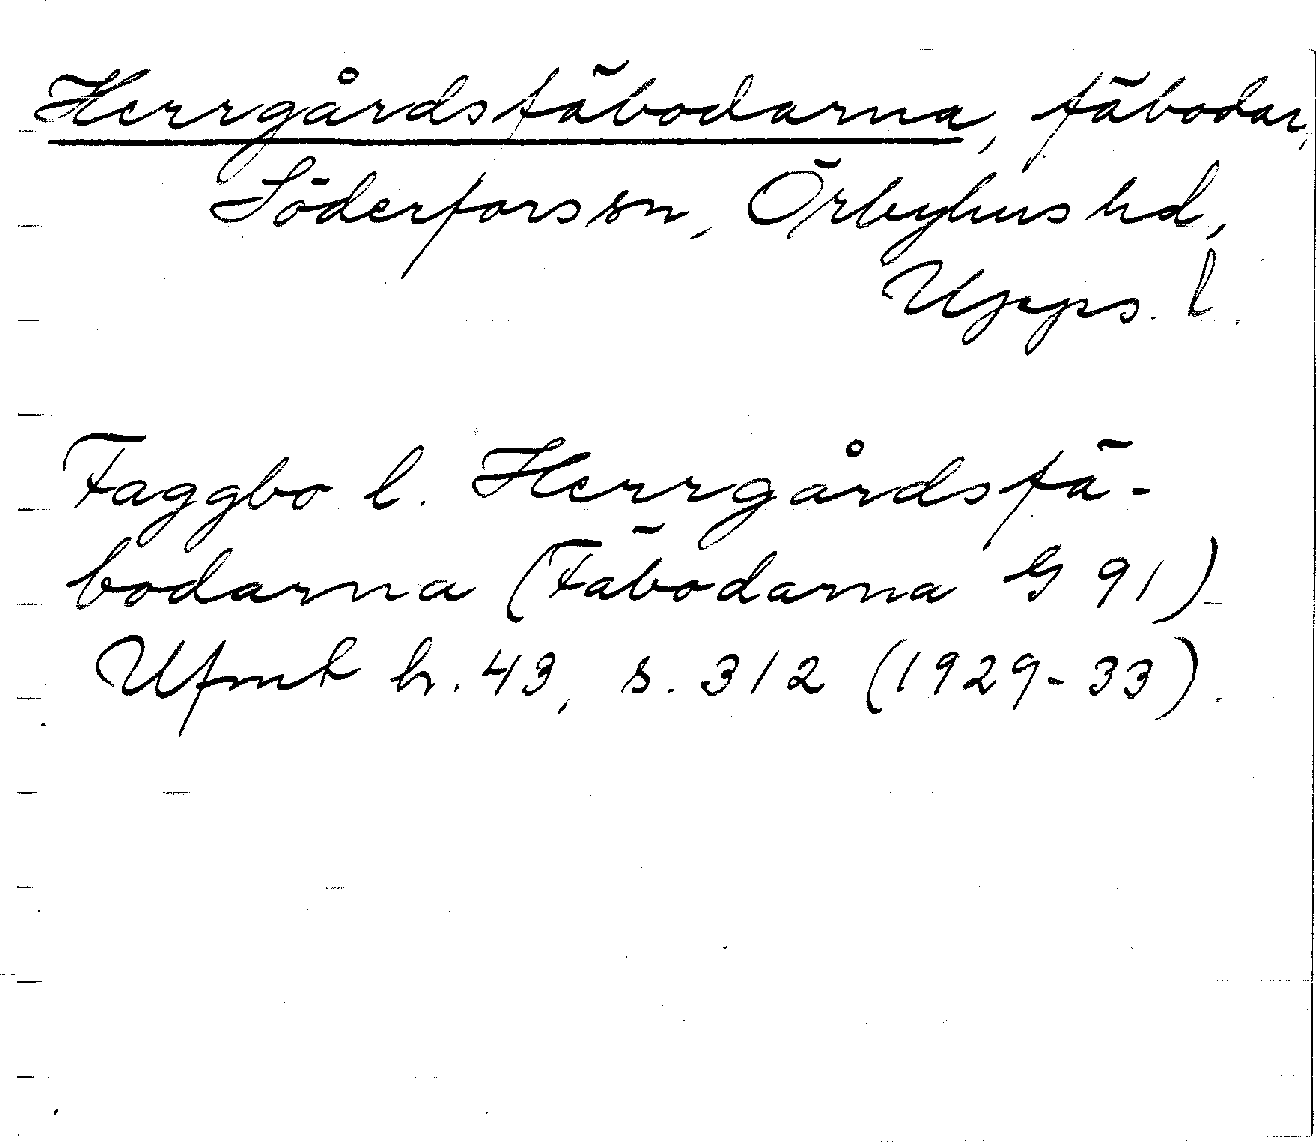 Herrgårdsfäbodarna, fäbodar,
Söderfors sn, Örbyhus hd,
Upps. l.
Faggbo l. Herrgårdsfä-
bodarna (Fäbodarna G 91)
Ufmt h. 43, s. 312 (1929-33).